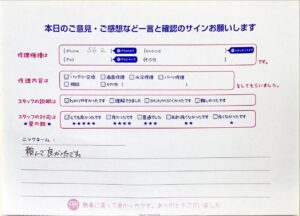 本日のご意見・ご感想など一言と確認のサインお願いします
修理機種は
iPhone SE2
Android
iPad
その他
です。
修理内容は
バッテリー交換 画面修理 水没修理 パーツ修理
相談 その他
をしてもらいました。
スタッフの説明は
わかりやすかったです 理解できました 少しわかりにくかったです 難しかったです
スタッフの対応は
★星の数★
とても良かったです 良かったです 普通でした
★★★★★ ★★★★ ★★★ ★★ ★
ニックネーム：
頼んで良かったです。
無事に直って良かったです。ありがとうございました